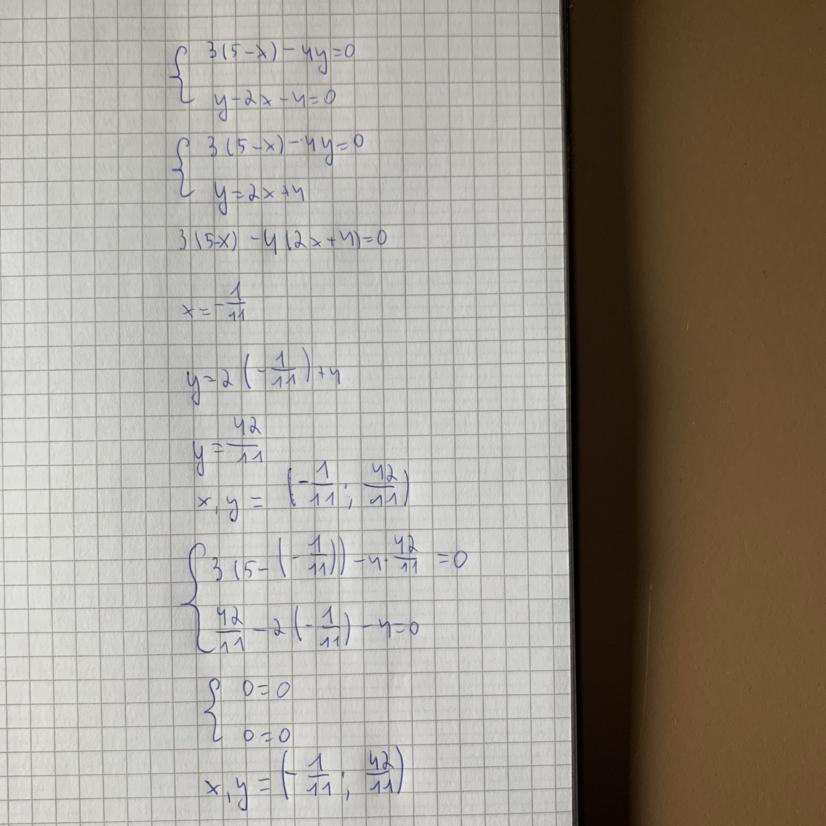 { 3(5-x)-4y=0
y-2x-4=0
{ 3(5-x)-4y=0
y=2x+4
3(5-x)-4(2x+4)=0
x=-1/11
y=2(-1/11)+4
y=42/11
x,y=(-1/11; 42/11)
{ 3(5-(-1/11))-4·42/11=0
42/11-2(-1/11)-4=0
{ 0=0
0=0
x,y=(-1/11; 42/11)